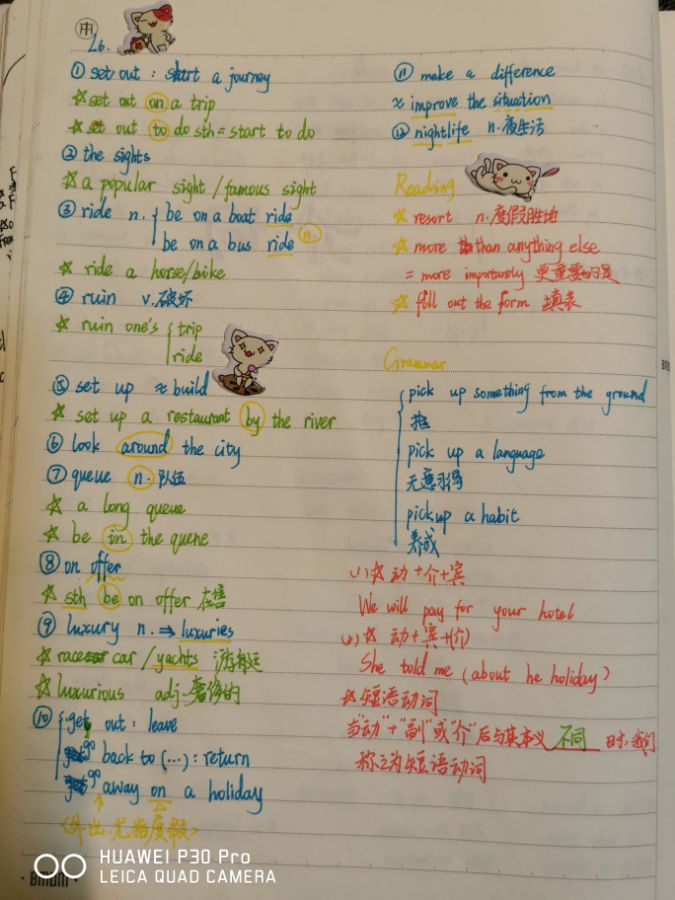 L6.
① set out : start a journey
☆ set out on a trip
☆ set out to do sth = start to do
② the sights
☆ a popular sight / famous sight
③ ride n. { be on a boat ride
be on a bus ride n.
☆ ride a horse/bike
④ ruin v. 破坏
☆ ruin one's { trip
ride
⑤ set up ≈ build
☆ set up a restaurant by the river
⑥ look around the city
⑦ queue n. 队伍
☆ a long queue
☆ be in the quene
⑧ on offer
☆ sth be on offer 在售
⑨ luxury n. ⇒ luxuries
☆ race car / yachts
☆ luxurious adj. 奢侈的
⑩ { get out : leave
go back to (...) : return
go away on a holiday
<外出.尤指度假>
⑪ make a difference
≈ improve the situation
⑫ nightlife n. 夜生活
Reading
☆ resort n. 度假胜地
☆ more than anything else
= more importantly 更重要的是
☆ fill out the form 填表
Grammar
{ pick up something from the ground
pick up a language
pick up a habit
养成
(1) ☆ 动+介+宾
We will pay for your hotel
(2) ☆ 动+宾+(介)
She told me (about he holiday)
☆ 短语动词
当"动"+"副"或"介"后与其本义 不同 时,我们
称之为短语动词
HUAWEI P30 Pro
LEICA QUAD CAMERA